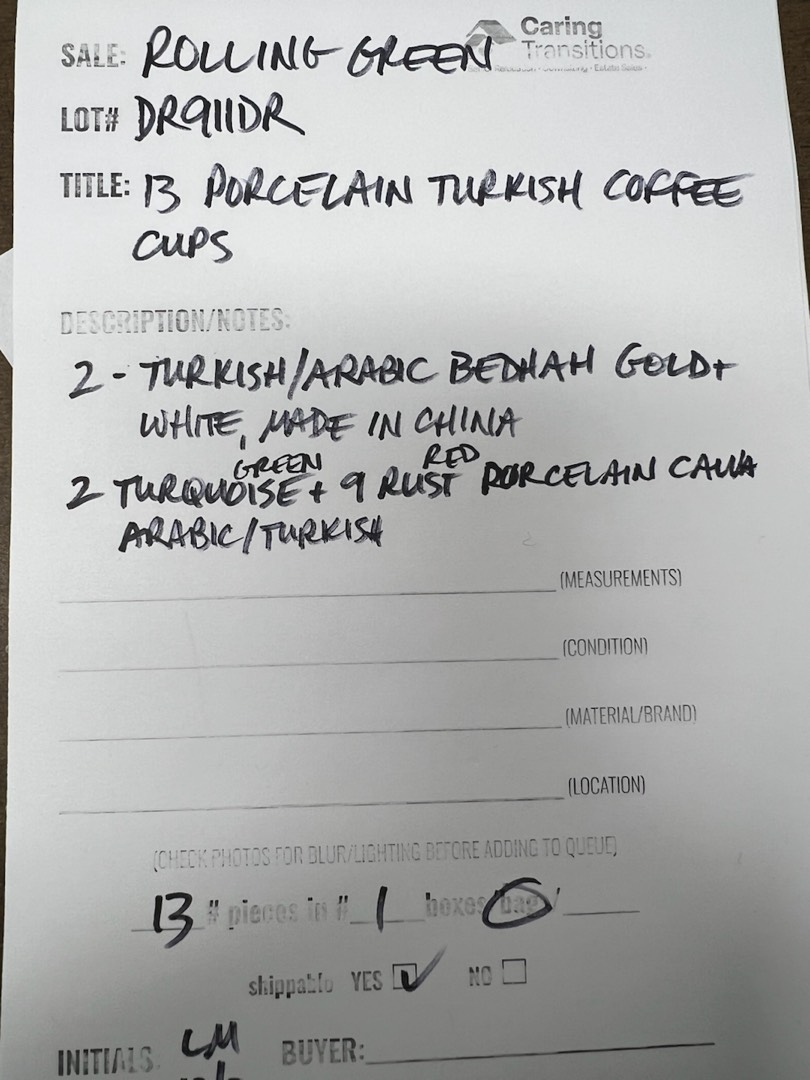 Caring
Transitions.
SALE: ROLLING GREEN
LOT# DR911DR
TITLE: 13 PORCELAIN TURKISH COFFEE
CUPS
DESCRIPTION/NOTES:
2 - TURKISH/ARABIC BEDHAH GOLD+
WHITE, MADE IN CHINA
GREEN RED
2 TURQUOISE + 9 RUST PORCELAIN CAUA
ARABIC/TURKISH
(MEASUREMENTS)
(CONDITION)
(MATERIAL/BRAND)
(LOCATION)
(CHECK PHOTOS FOR BLUR/LIGHTING BEFORE ADDING TO QUEUE)
13 # pieces in # 1 boxes/bag/
shippable YES NO
INITIALS LM BUYER: